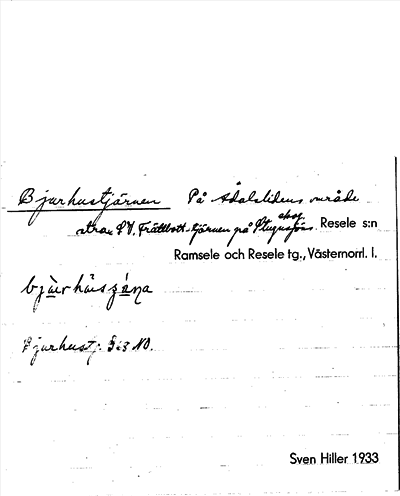 Bjurhustjärnen På Ådalslidens område
strax S.V. Trättbott-tjärnen på skog. Resele s:n
Ramsele och Resele tg., Västernorrl. l.
Bjurhustj. 5:3 NO.
Sven Hiller 1933